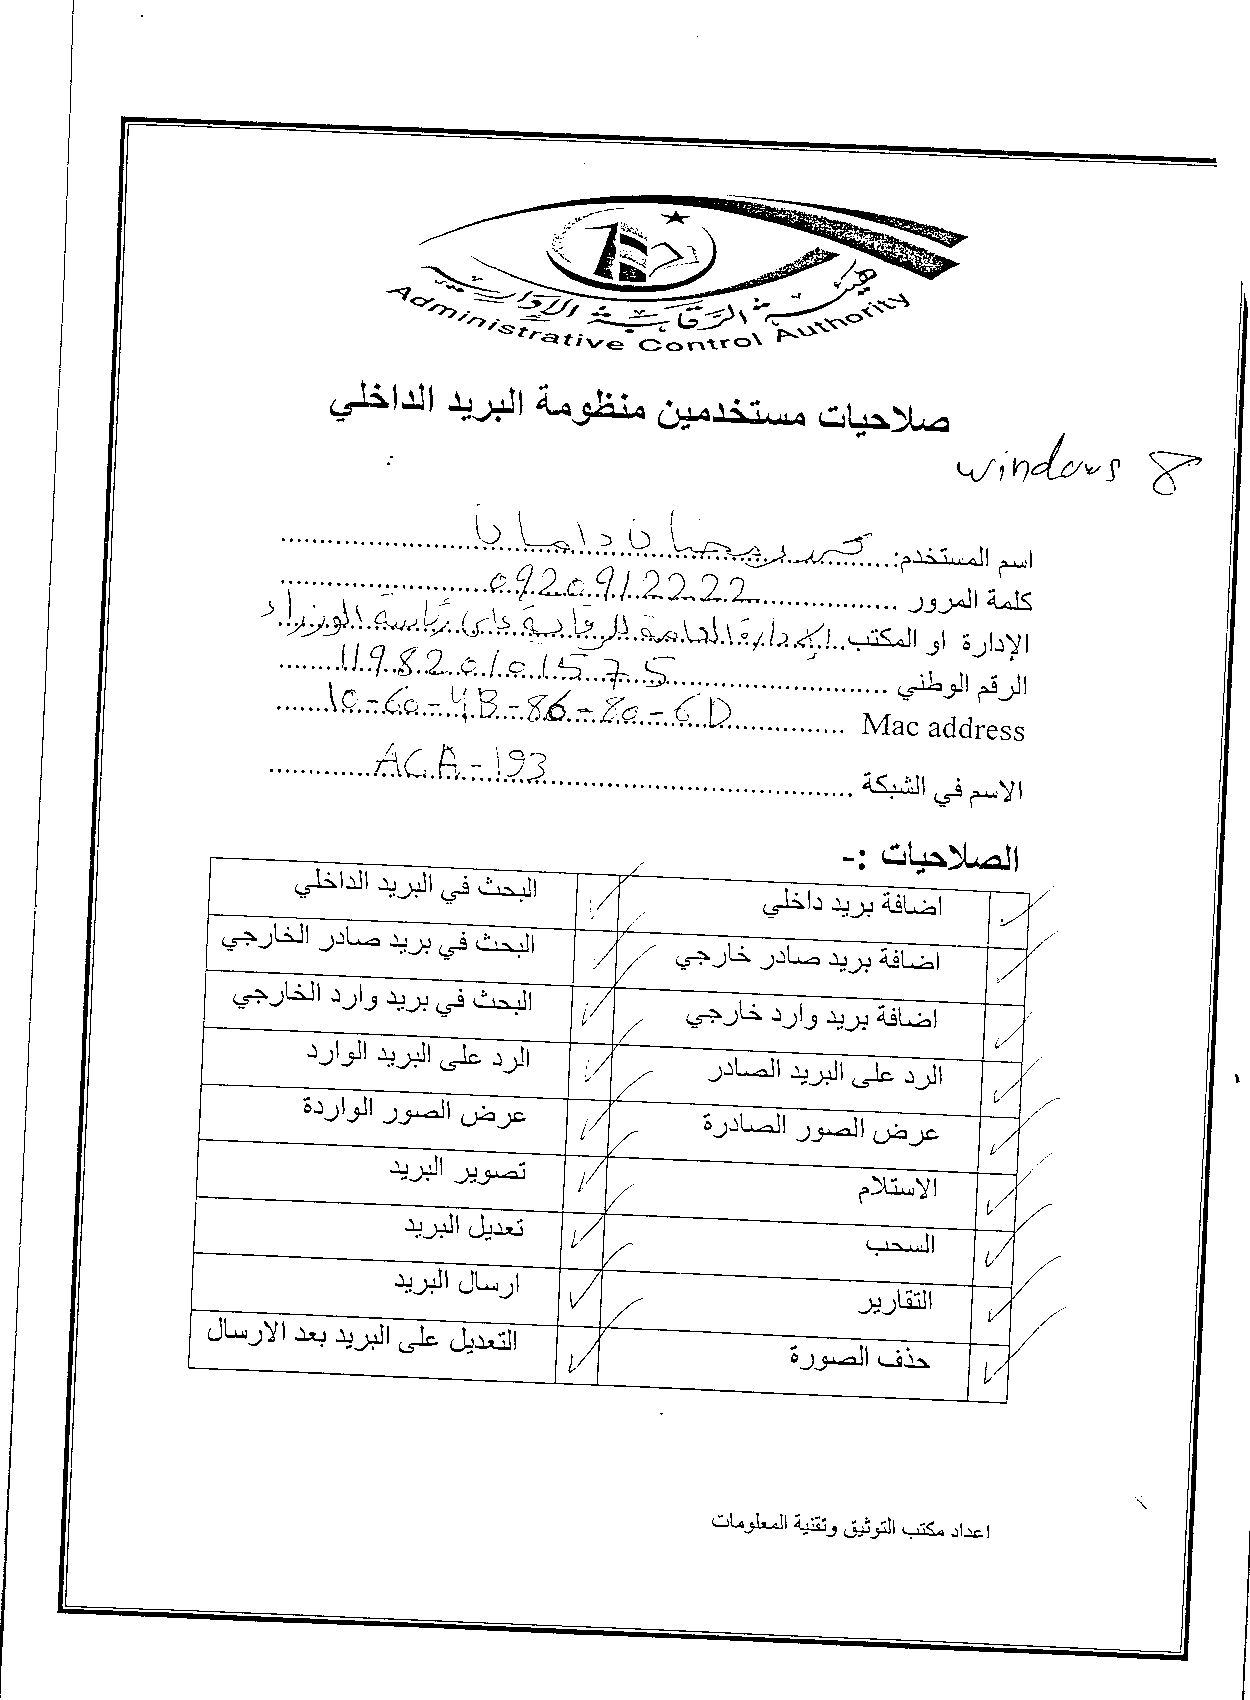 هيئة الرقابة الإدارية
Administrative Control Authority
صلاحيات مستخدمين منظومة البريد الداخلي
windows 8
اسم المستخدم: محمد رمضان دامان
كلمة المرور 0920912222
الإدارة او المكتب. الإدارة العامة للرقابة على رئاسة الوزراء
الرقم الوطني 119820101575
Mac address 10-60-4B-86-80-6D
الاسم في الشبكة ACA-193
الصلاحيات :-
اضافة بريد داخلي البحث في البريد الداخلي
اضافة بريد صادر خارجي البحث في بريد صادر الخارجي
اضافة بريد وارد خارجي البحث في بريد وارد الخارجي
الرد على البريد الصادر الرد على البريد الوارد
عرض الصور الصادرة عرض الصور الواردة
الاستلام تصوير البريد
السحب تعديل البريد
التقارير ارسال البريد
حذف الصورة التعديل على البريد بعد الارسال
اعداد مكتب التوثيق وتقنية المعلومات